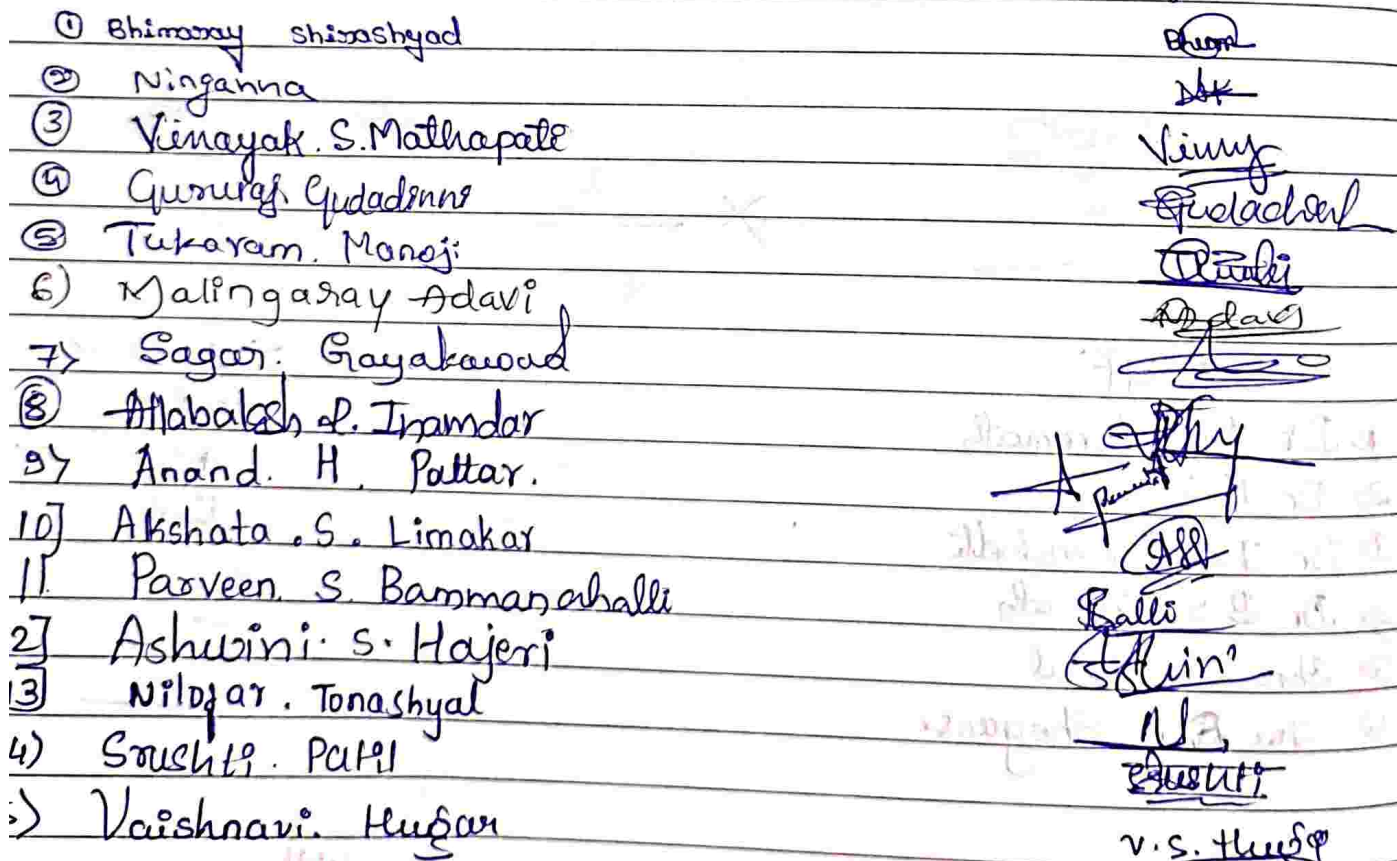 ① Bhimaray shirashyad
② Ninganna
③ Vinayak. S. Mathapati Vinny
④ Gururaj Gudadinni
⑤ Tukaram. Manoji
6) Malingaray Adavi Adavi
7) Sagar. Gayakawad
⑧ Allabaksh P. Inamdar
9) Anand. H. Pattar.
10] Akshata. S. Limakar
11. Parveen. S. Bammanahalli Balli
2] Ashwini. S. Hajeri
13] Nilofar. Tonashyal N.
4) Srushti. Patil Srushti
) Vaishnavi. Hugar V.S. Hugar